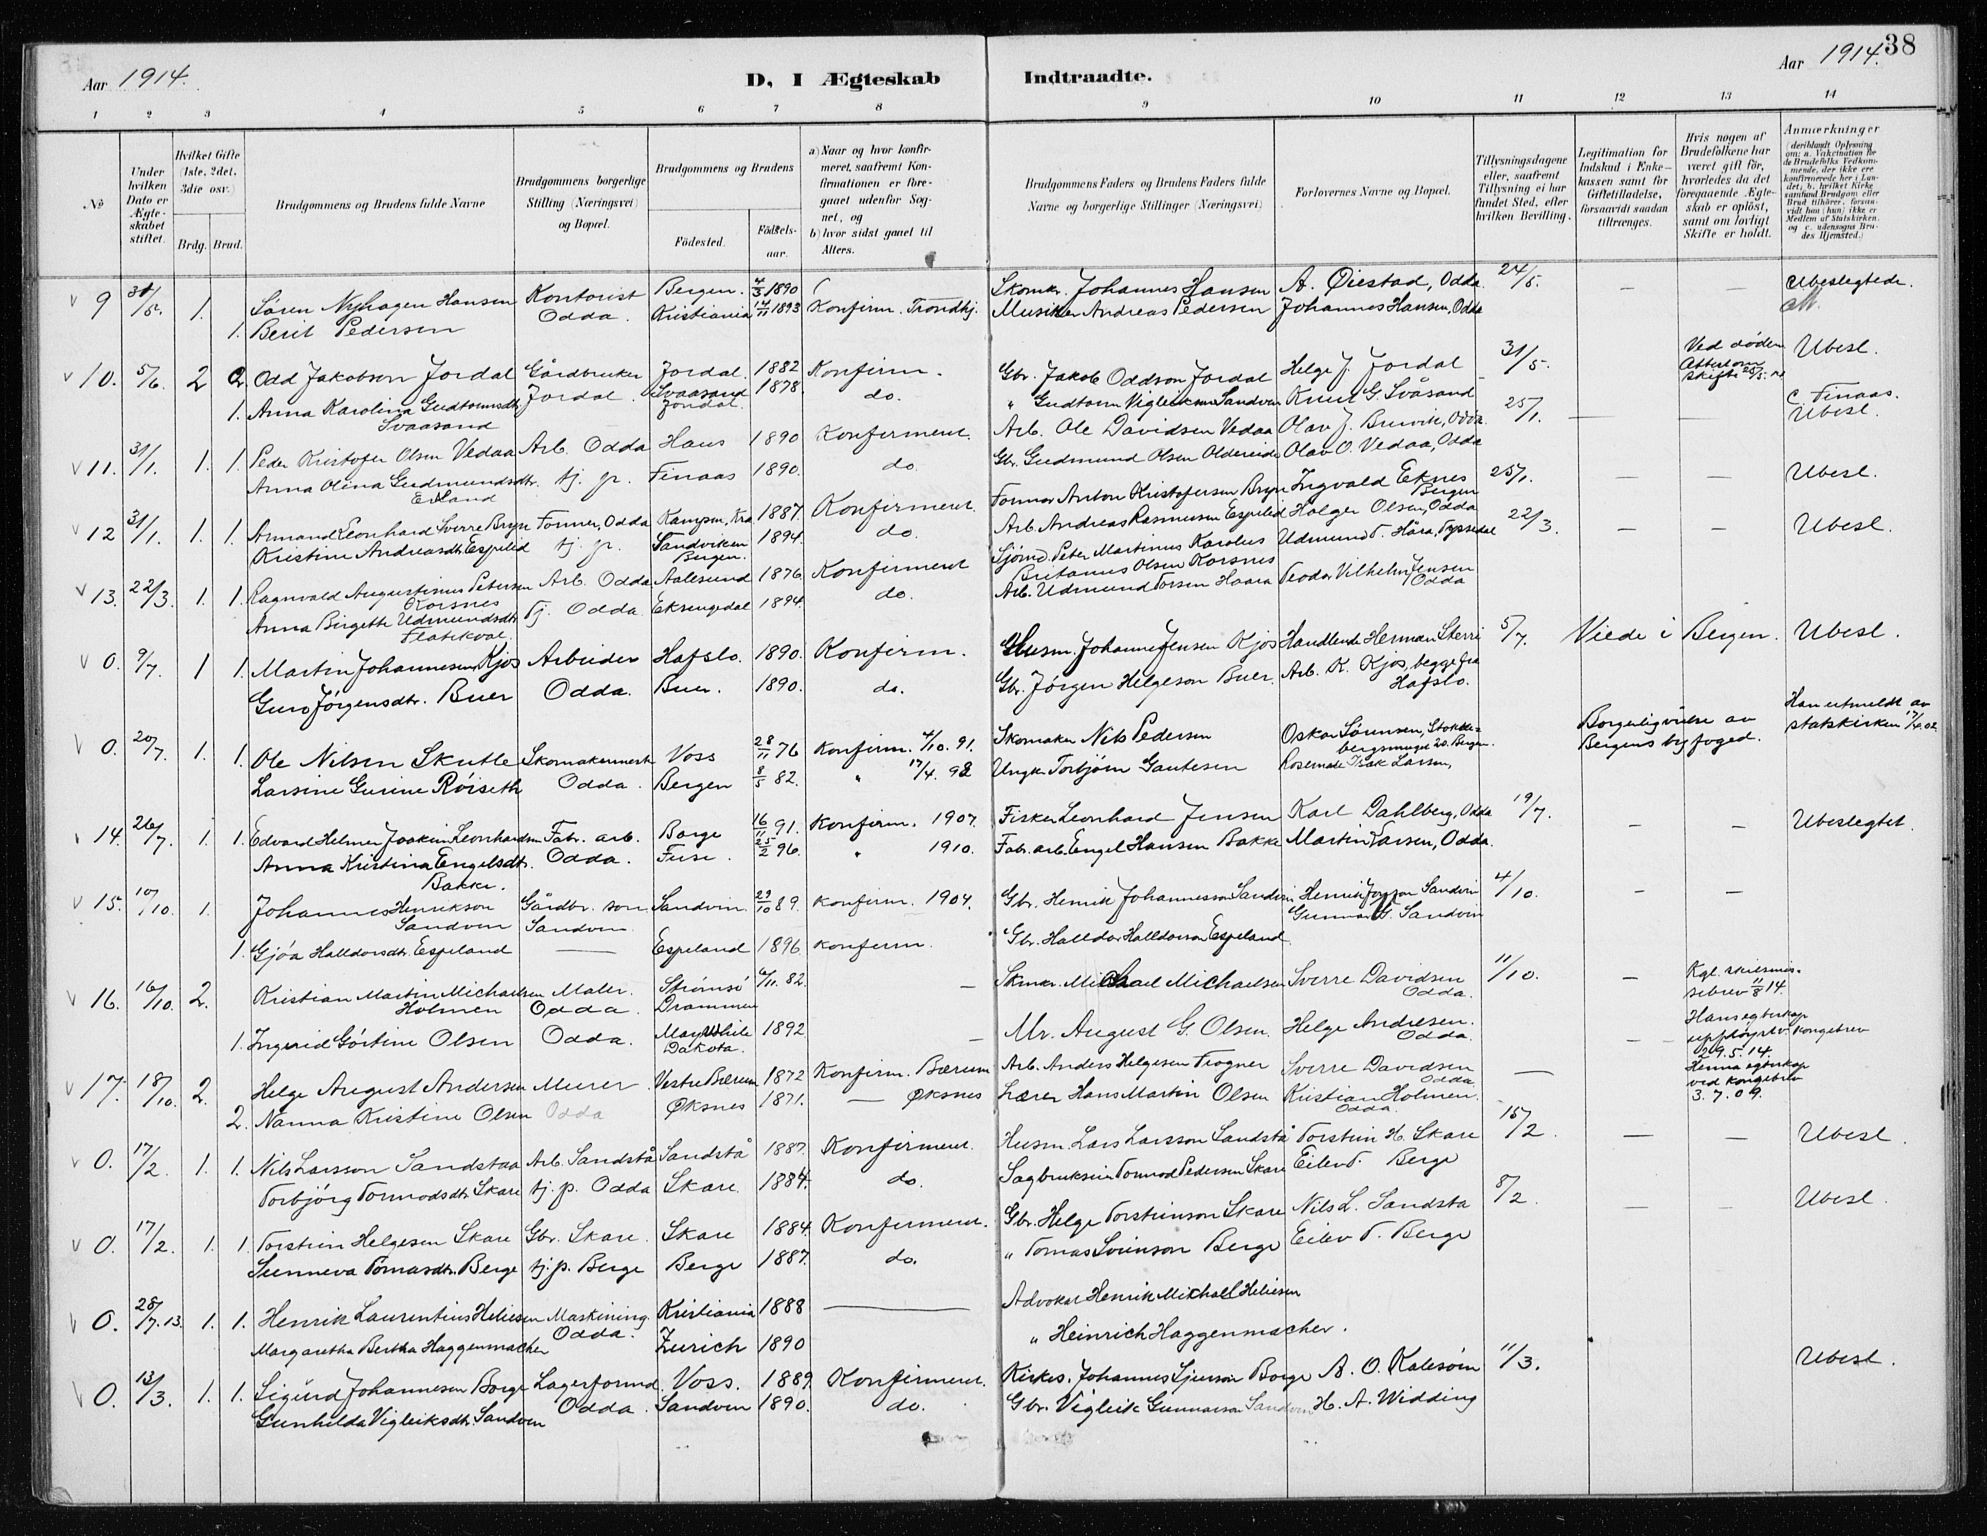 38
Aar 1914.
D, I Ægteskab Indtraadte.
Aar 1914.
1 2 3 4 5 6 7 8 9 10 11 12 13 14
№
Under hvilken Dato er Ægteskabet stiftet.
Hvilket Gifte (1ste, 2det, 3die osv.)
Brdg. Brud.
Brudgommens og Brudens fulde Navne
Brudgommens borgerlige Stilling (Næringsvei) og Bopæl.
Brudgommens og Brudens
Fødested.
Fødselsaar.
a) Naar og hvor konfirmeret, saafremt Konfirmationen er foregaaet udenfor Sognet, og
b) hvor sidst gaaet til Alters.
Brudgommens Faders og Brudens Faders fulde Navne og borgerlige Stillinger (Næringsvei)
Forlovernes Navne og Bopæl.
Tillysningsdagene eller, saafremt Tillysning ei har fundet Sted, efter hvilken Bevilling.
Legitimation for Indskud i Enkekassen samt for Giftetilladelse, forsaavidt saadan tiltrænges.
Hvis nogen af Brudefolkene har været gift før, hvorledes da det foregaaende Ægteskab er opløst, samt om lovligt Skifte er holdt.
Anmærkninger (deriblandt Oplysning om: a. Vakcination for de Brudefolks Vedkommende, der ikke ere konfirmerede her i Landet; b. hvilket Kirkesamfund Brudgom eller Brud tilhører, forsaavidt han (hun) ikke er Medlem af Statskirken, og c. udensogns Brudes Hjemsted.)
9 31/5. 1. Søren Nyhagen Hansen Kontorist Bergen. 4/3 1890 Skomkr. Johannes Hansen A. Øiestad, Odda 24/5. — — Ubeslegtede.
1. Berit Pedersen Odda. Kristiania 14/11 1893 Konfirm. Trondhj. Musiker Andreas Pedersen Johannes Hansen, Odda
10. 5/6. 2 Odd Jakobson Jordal Gårdbruker Jordal. 1882 Konfirm. Gbr. Jakob Oddson Jordal Helge J. Jordal 31/5. Ved døden Ubesl.
1. Anna Karolina Gudtormsdtr. Svaasand Jordal. Svaasand Jondal. 1878. do. " Gudtorm Vigleikson Sandven Knut G Svåsand c Finaas.
11. 31/1. 1. 1. Peder Kristofer Olsen Vedaa Arb. Odda Haus 1890 Konfirmeret. Arb. Ole Davidsen Vedaa Olav J. Buvik, Odda 25/1. — — Ubesl.
Anna Olina Gudmundsdtr. tj. p. Finaas 1890. do. Gbr. Gudmund Olsen Oldereide Olav O. Vedaa, Odda
12 31/1. 1. 1. Armand Leonhard Sverre Bryn Former, Odda Kampen, Kra 1887. Konfirmeret Former Anton Kristofersen Bryn Ingvald Eknes Bergen 25/1. Ubesl.
Kristine Andreasdtr. Espelid tj. p. Sandviken Bergen. 1894. do. Arb. Andreas Rasmussen Espelid Holger Olsen, Odda
13. 22/3. 1. 1. Ragnvald Augustinus Petersen Korsnes Arb. Odda Aalesund 1876 Konfirmeret Sjømd. Peter Martinus Karolus Britanus Olsen Korsnes Udmund T. Håra, Tyssedal 22/3. — — Ubesl.
Anna Birgette Udmundsdtr. Flatekval. Tj. Odda Eksingedal 1894. do. Arb. Udmund Torsen Haara Teodor Vilhelm Jensen Odda
0. 9/7. 1 1. Martin Johannesen Kjos Arbeider Hafslo. 1890. Konfirm. Husm. Johannes Jensen Kjos Handlende Herman Sterri 5/7. Viede i Bergen. Ubesl.
Guro Jørgensdtr. Buer Odda. Buer. 1890. do. Gbr. Jørgen Helgeson Buer. Arb. K. Kjos, begge fra Hafslo.
0. 20/7. 1. 1. Ole Nilsen Skutle Skomakermestr Voss 28/11 76 Konfirm. 4/10. 91. Skomaker Nils Pedersen Oskar Sørensen, Bergen. Borgerlig vielse av Bergens byfoged. Han utmeldt av statskirken
Larsine Gurine Røiseth Odda. Bergen 8/5 82. " 17/4. 98 Ungk. Torbjørn Gautesen Isak Larsen,
14. 26/7. 1. 1. Edvard Helmer Joakim Leonhardsen Fabr. arb. Borge 16/11 91. Konfirm. 1907. Fisker Leonhard Jensen Karl Dahlberg, Odda 19/7. — — Ubeslegtet.
Anna Kristina Engelsdtr. Bakke. Odda. Fuse. 25/2 96. " 1910. Fabr. arb. Engel Hansen Bakke Martin Larsen, Odda.
15. 10/10. 1. Johannes Henrikson Sandven Gårdbr. søn Sandven Sandvin. 29/10 89. Konfirm. 1904. Gbr. Henrik Johannesson Sandvin Henrik Sandvin Gunnar G. Sandvin 4/10. — —
1. Gjøa Halldorsdtr. Espeland — Espeland 1896 Konfirm. Gbr. Halldor Halldorson Espeland
16. 16/10. 2. Kristian Martin Michaelsen Holmen Maler. Odda. Strømsø Drammen 6/11. 82. — Skmkr. Michael Michaelsen Sverre Davidsen Odda. 11/10. — Kgl. skilsmissebrev 11/8 14.
1. Ingerid Gørtine Olsen Odda. Mayville Dakota. 1892 — Mr. August G. Olsen. Helge Andresen. Odda. — Hans egteskap opphevet v. kongebrev 29.5.14.
17. 18/10. 2. Helge August Andersen Murer Vestre Bærum 1872 Konfirm. Bærum Arb. Anders Helgesen Frogner Sverre Davidsen Odda. — Hennes egteskap ved kongebrev 3.7.09.
2. Nanna Kristine Olsen Odda Øksnes 1871. — Øksnes Lærer Hans Martin Olsen Kristian Holmen. Odda.
0. 17/2. 1. 1. Nils Larsson Sandstaa Arb. Sandstå Sandstå 1887. Konfirmeret. Husm. Lars Larsson Sandstå Torstein H. Skare 15/2 — — Ubesl.
Torbjørg Tormodsdtr. Skare tj. p. Odda Skare. 1884. do. Sagbrukseier Tormod Pedersen Skare Eilev T. Berge
0. 17/2. 1. 1. Torstein Helgesen Skare Gbr. Skare. Skare 1884. Konfirmeret. Gbr. Helge Torsteinson Skare Nils L. Sandstå 8/2 — — Ubesl.
Sunneva Tomasdtr. Berge tj. p. Berge Berge 1887. do. " Tomas Sveinson Berge Eilev T. Berge
0. 28/7. 13. 1. 1. Henrik Laurentius Heliesen Maskining. Odda. Kristiania 1888 — Advokat Henrik Michael Heliesen
Margaretha Bertha Haggenmacher Zurich 1890 " Heinrich Haggenmacher.
0. 13/3. 1. 1. Sigurd Johannesen Borge Lagerformd. Voss. 1889. Konfirmeret. Kirkes. Johannes Borge A. O. Kalesøin 11/3. Ubesl.
Gunhilda Vigleiksdtr. Sandven Odda. Sandven 1890. do. Gbr. Vigleik Gunnarson Sandven H. A. Widding